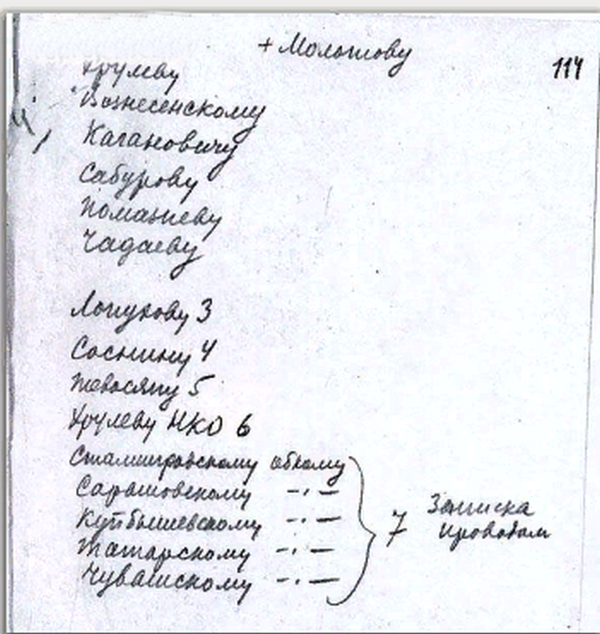 + Молотову
114
Хрулеву
Вознесенскому
Кагановичу
Сабурову
Помазневу
Чадаеву
Лопухову 3
Соснину 4
Тевосяну 5
Хрулеву НКО 6
Сталинградскому обкому
Саратовскому -"-
Куйбышевскому -"-
Татарскому -"-
Чувашскому -"-
7 Записка
проводам